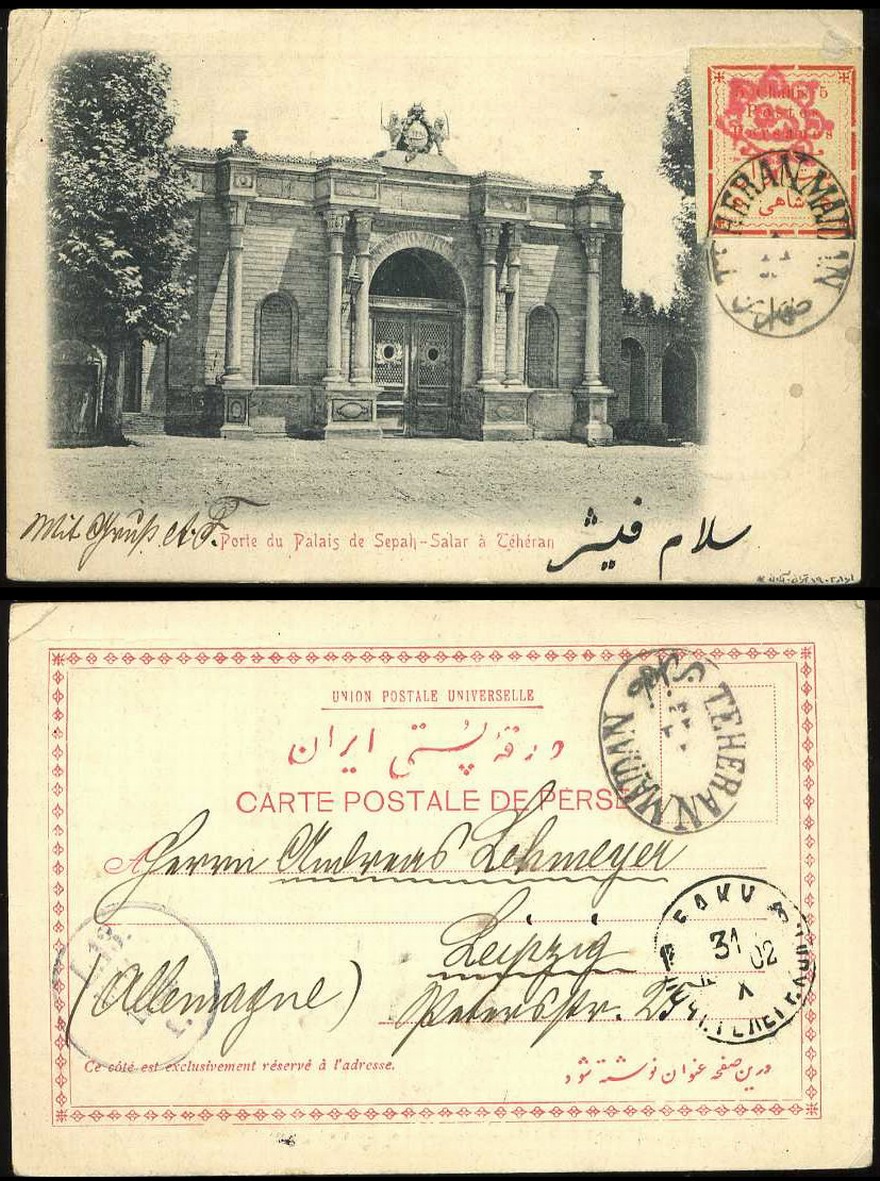 5 Chahis 5
Postes
Persanes
شاهی
TEHERAN MAIDAN
Mit Gruß A. F.
Porte du Palais de Sepah-Salar à Téhéran
سلام فیشر
UNION POSTALE UNIVERSELLE
ورقهٔ پُستی ایران
CARTE POSTALE DE PERSE
TEHERAN MAIDAN
A Herrn Andreas Lehmeyer
Leipzig
(Allemagne)
Petersstr.
BAKU
31
X 02
Ce côté est exclusivement réservé à l'adresse.
درین صفحه عنوان نوشته شود